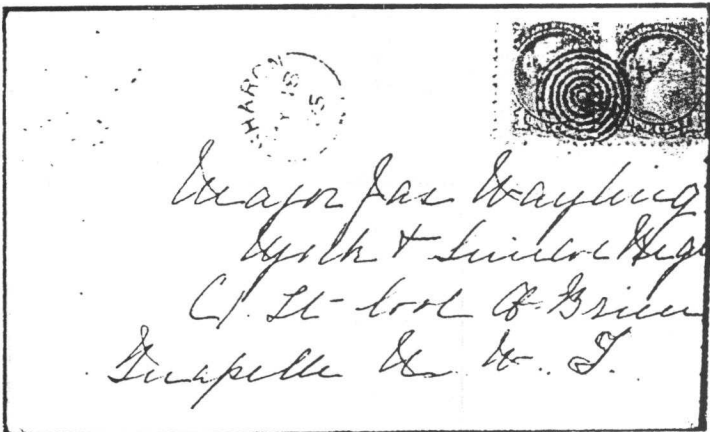 SHARON
18
Major Jas Wayling
York & Simcoe Regt
Lt Col O'Brien
Quapelle N. W. T.